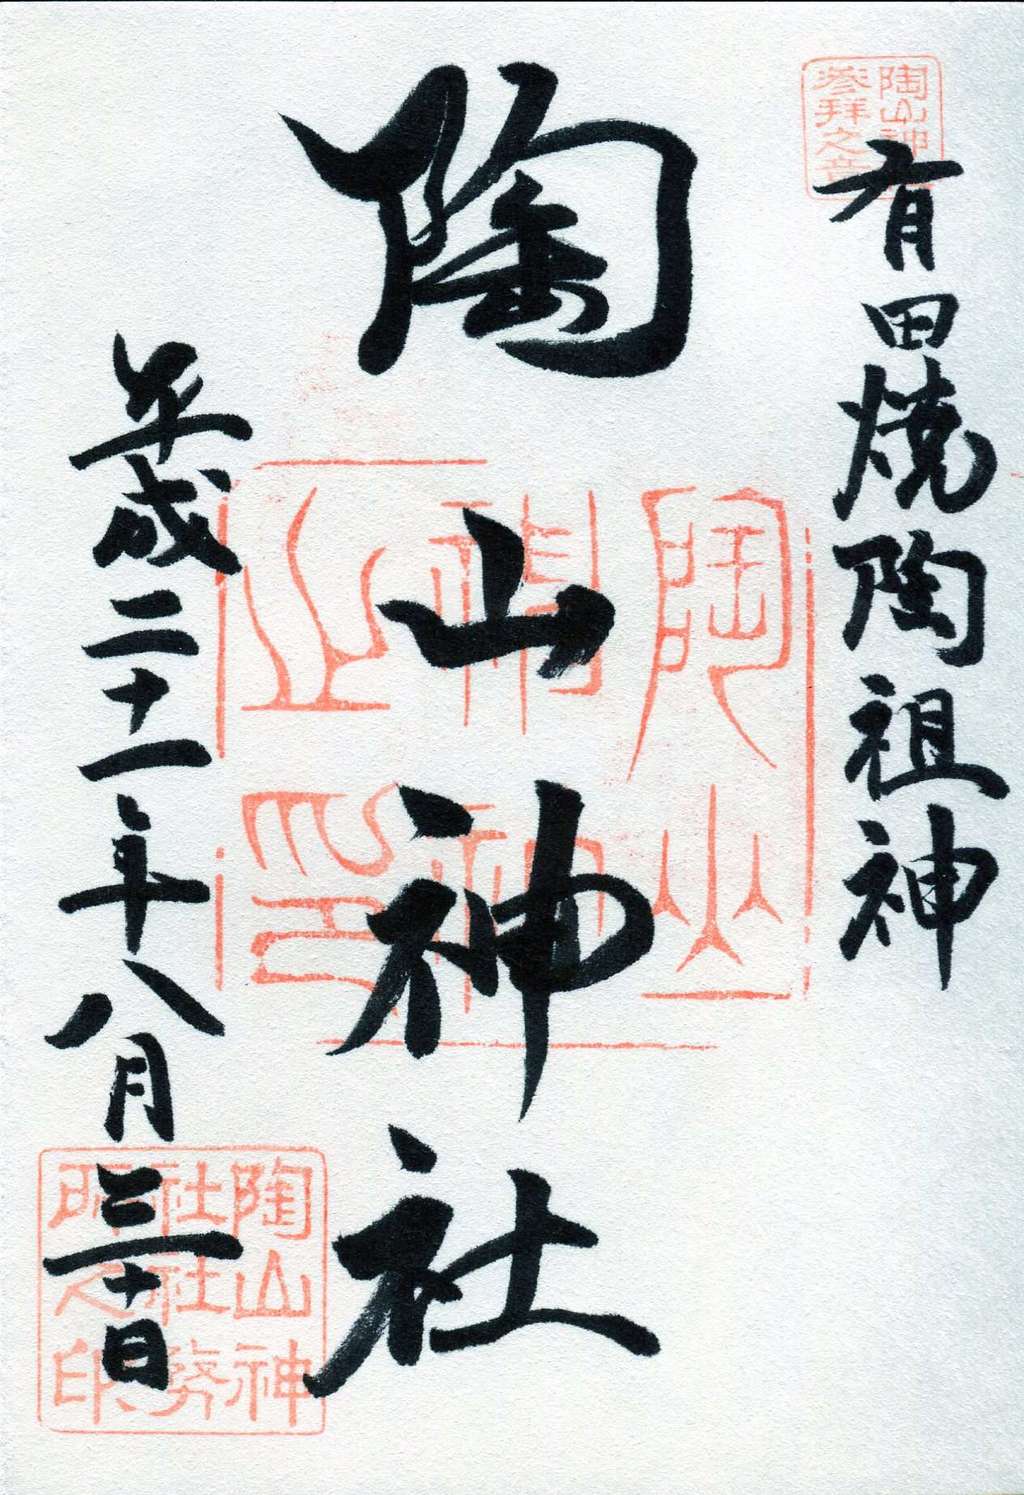 有田焼陶祖神
陶山神社
平成二十一年八月三十日
陶山神
参拝之章
陶山神社之印
陶山神
社社務
所之印